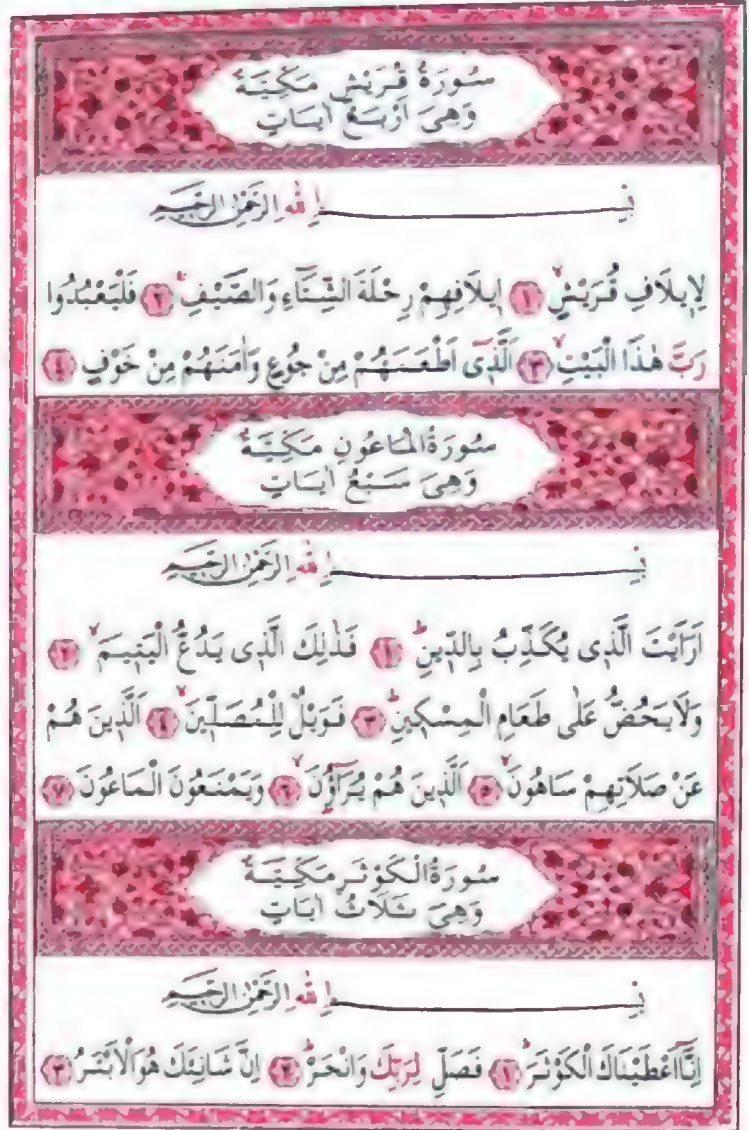 سُورَةُ قُرَيْشٍ مَكِّيَّةٌ
وَهِىَ اَرْبَعُ اٰيَاتٍ
بِسْمِ اللّٰهِ الرَّحْمٰنِ الرَّحِيمِ
لِا۪يلَافِ قُرَيْشٍۙ ﴿١﴾ ا۪يلَافِهِمْ رِحْلَةَ الشِّتَٓاءِ وَالصَّيْفِۚ ﴿٢﴾ فَلْيَعْبُدُوا
رَبَّ هٰذَا الْبَيْتِۙ ﴿٣﴾ اَلَّذ۪ٓى اَطْعَمَهُمْ مِنْ جُوعٍ وَاٰمَنَهُمْ مِنْ خَوْفٍ ﴿٤﴾
سُورَةُ الْمَاعُونِ مَكِّيَّةٌ
وَهِىَ سَبْعُ اٰيَاتٍ
بِسْمِ اللّٰهِ الرَّحْمٰنِ الرَّحِيمِ
اَرَاَيْتَ الَّذ۪ى يُكَذِّبُ بِالدّ۪ينِۜ ﴿١﴾ فَذٰلِكَ الَّذ۪ى يَدُعُّ الْيَت۪يمَۙ ﴿٢﴾
وَلَا يَحُضُّ عَلٰى طَعَامِ الْمِسْك۪ينِۜ ﴿٣﴾ فَوَيْلٌ لِلْمُصَلّ۪ينَۙ ﴿٤﴾ اَلَّذ۪ينَ هُمْ
عَنْ صَلَاتِهِمْ سَاهُونَۙ ﴿٥﴾ اَلَّذ۪ينَ هُمْ يُرَٓاؤُ۫نَۙ ﴿٦﴾ وَيَمْنَعُونَ الْمَاعُونَ ﴿٧﴾
سُورَةُ الْكَوْثَرِ مَكِّيَّةٌ
وَهِىَ ثَلَاثُ اٰيَاتٍ
بِسْمِ اللّٰهِ الرَّحْمٰنِ الرَّحِيمِ
اِنَّٓا اَعْطَيْنَاكَ الْكَوْثَرَۜ ﴿١﴾ فَصَلِّ لِرَبِّكَ وَانْحَرْۜ ﴿٢﴾ اِنَّ شَانِئَكَ هُوَ الْاَبْتَرُ ﴿٣﴾